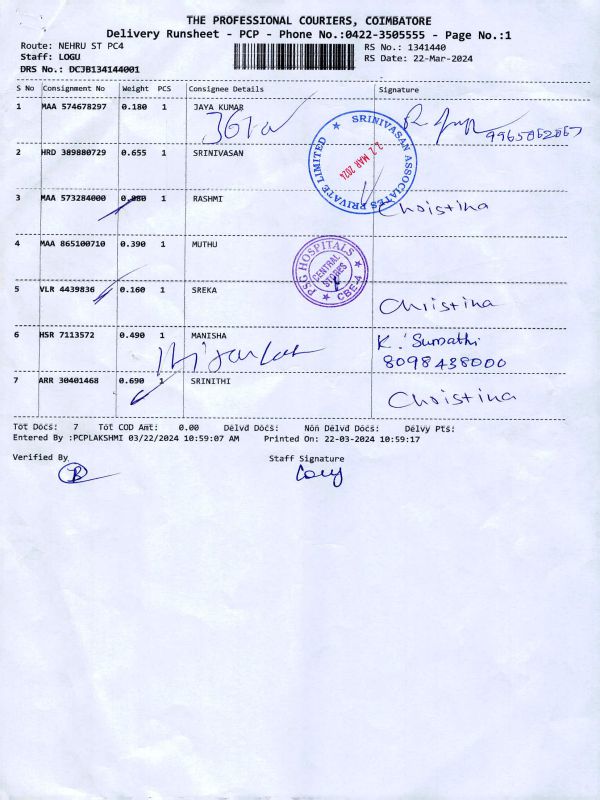 THE PROFESSIONAL COURIERS, COIMBATORE
Delivery Runsheet - PCP - Phone No.:0422-3505555 - Page No.:1
Route: NEHRU ST PC4 RS No.: 1341440
Staff: LOGU RS Date: 22-Mar-2024
DRS No.: DCJB134144001
S No Consignment No Weight PCS Consignee Details Signature
1 MAA 574678297 0.180 1 JAYA KUMAR
9965052667
SRINIVASAN ASSOCIATES PRIVATE LIMITED
22 MAR 2024
2 HRD 389880729 0.655 1 SRINIVASAN
3 MAA 573284000 0.080 1 RASHMI Christina
4 MAA 865100710 0.390 1 MUTHU
PSG HOSPITALS
CENTRAL STORES
CBE-4
5 VLR 4439836 0.160 1 SREKA Christina
6 HSR 7113572 0.490 1 MANISHA K. Sumathi
8098438000
7 ARR 30401468 0.690 1 SRINITHI Christina
Tot Docs: 7 Tot COD Amt: 0.00 Delvd Docs: Non Delvd Docs: Delvy Pts:
Entered By :PCPLAKSHMI 03/22/2024 10:59:07 AM Printed On: 22-03-2024 10:59:17
Verified By Staff Signature